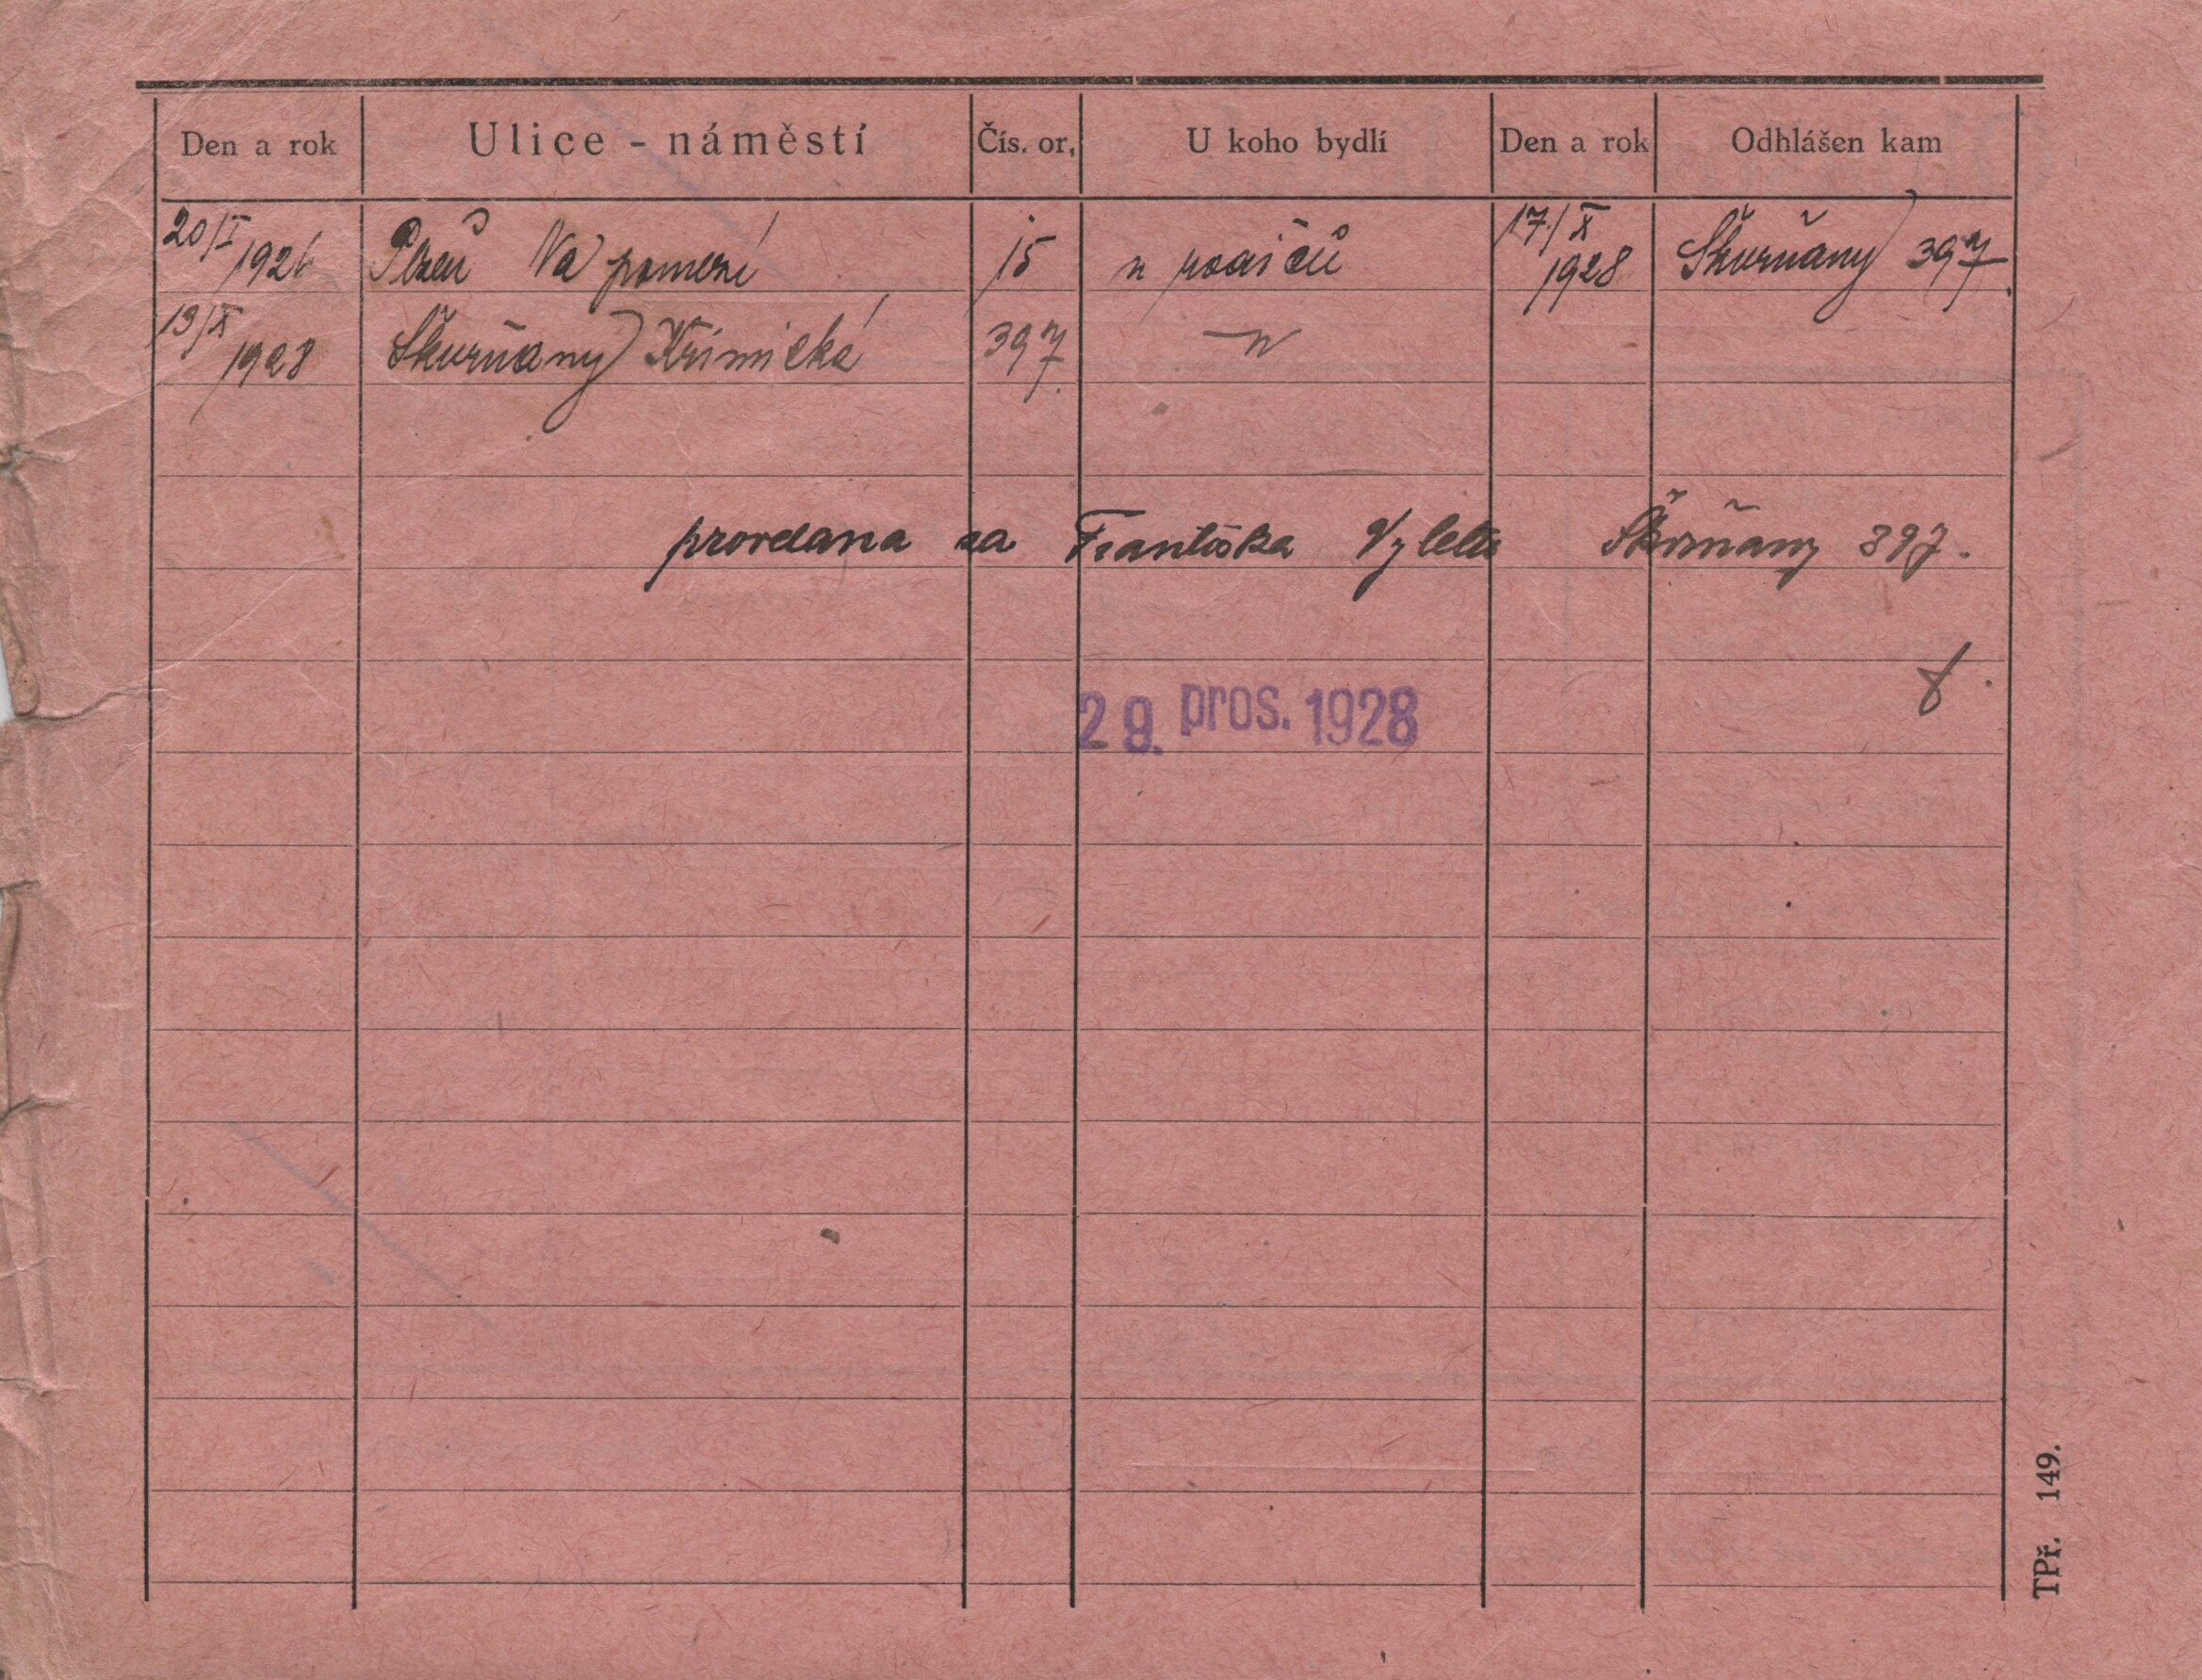 Den a rok Ulice - náměstí Čís. or, U koho bydlí Den a rok Odhlášen kam
20/I 1926 Plzeň Na pomezí 15 u rodičů 17/X 1928 Škvrňany 397
19/X 1928 Škvrňany Křimická 397
provdana za Františka Vyleta Škvrňany 397.
29. pros. 1928
TPř. 149.